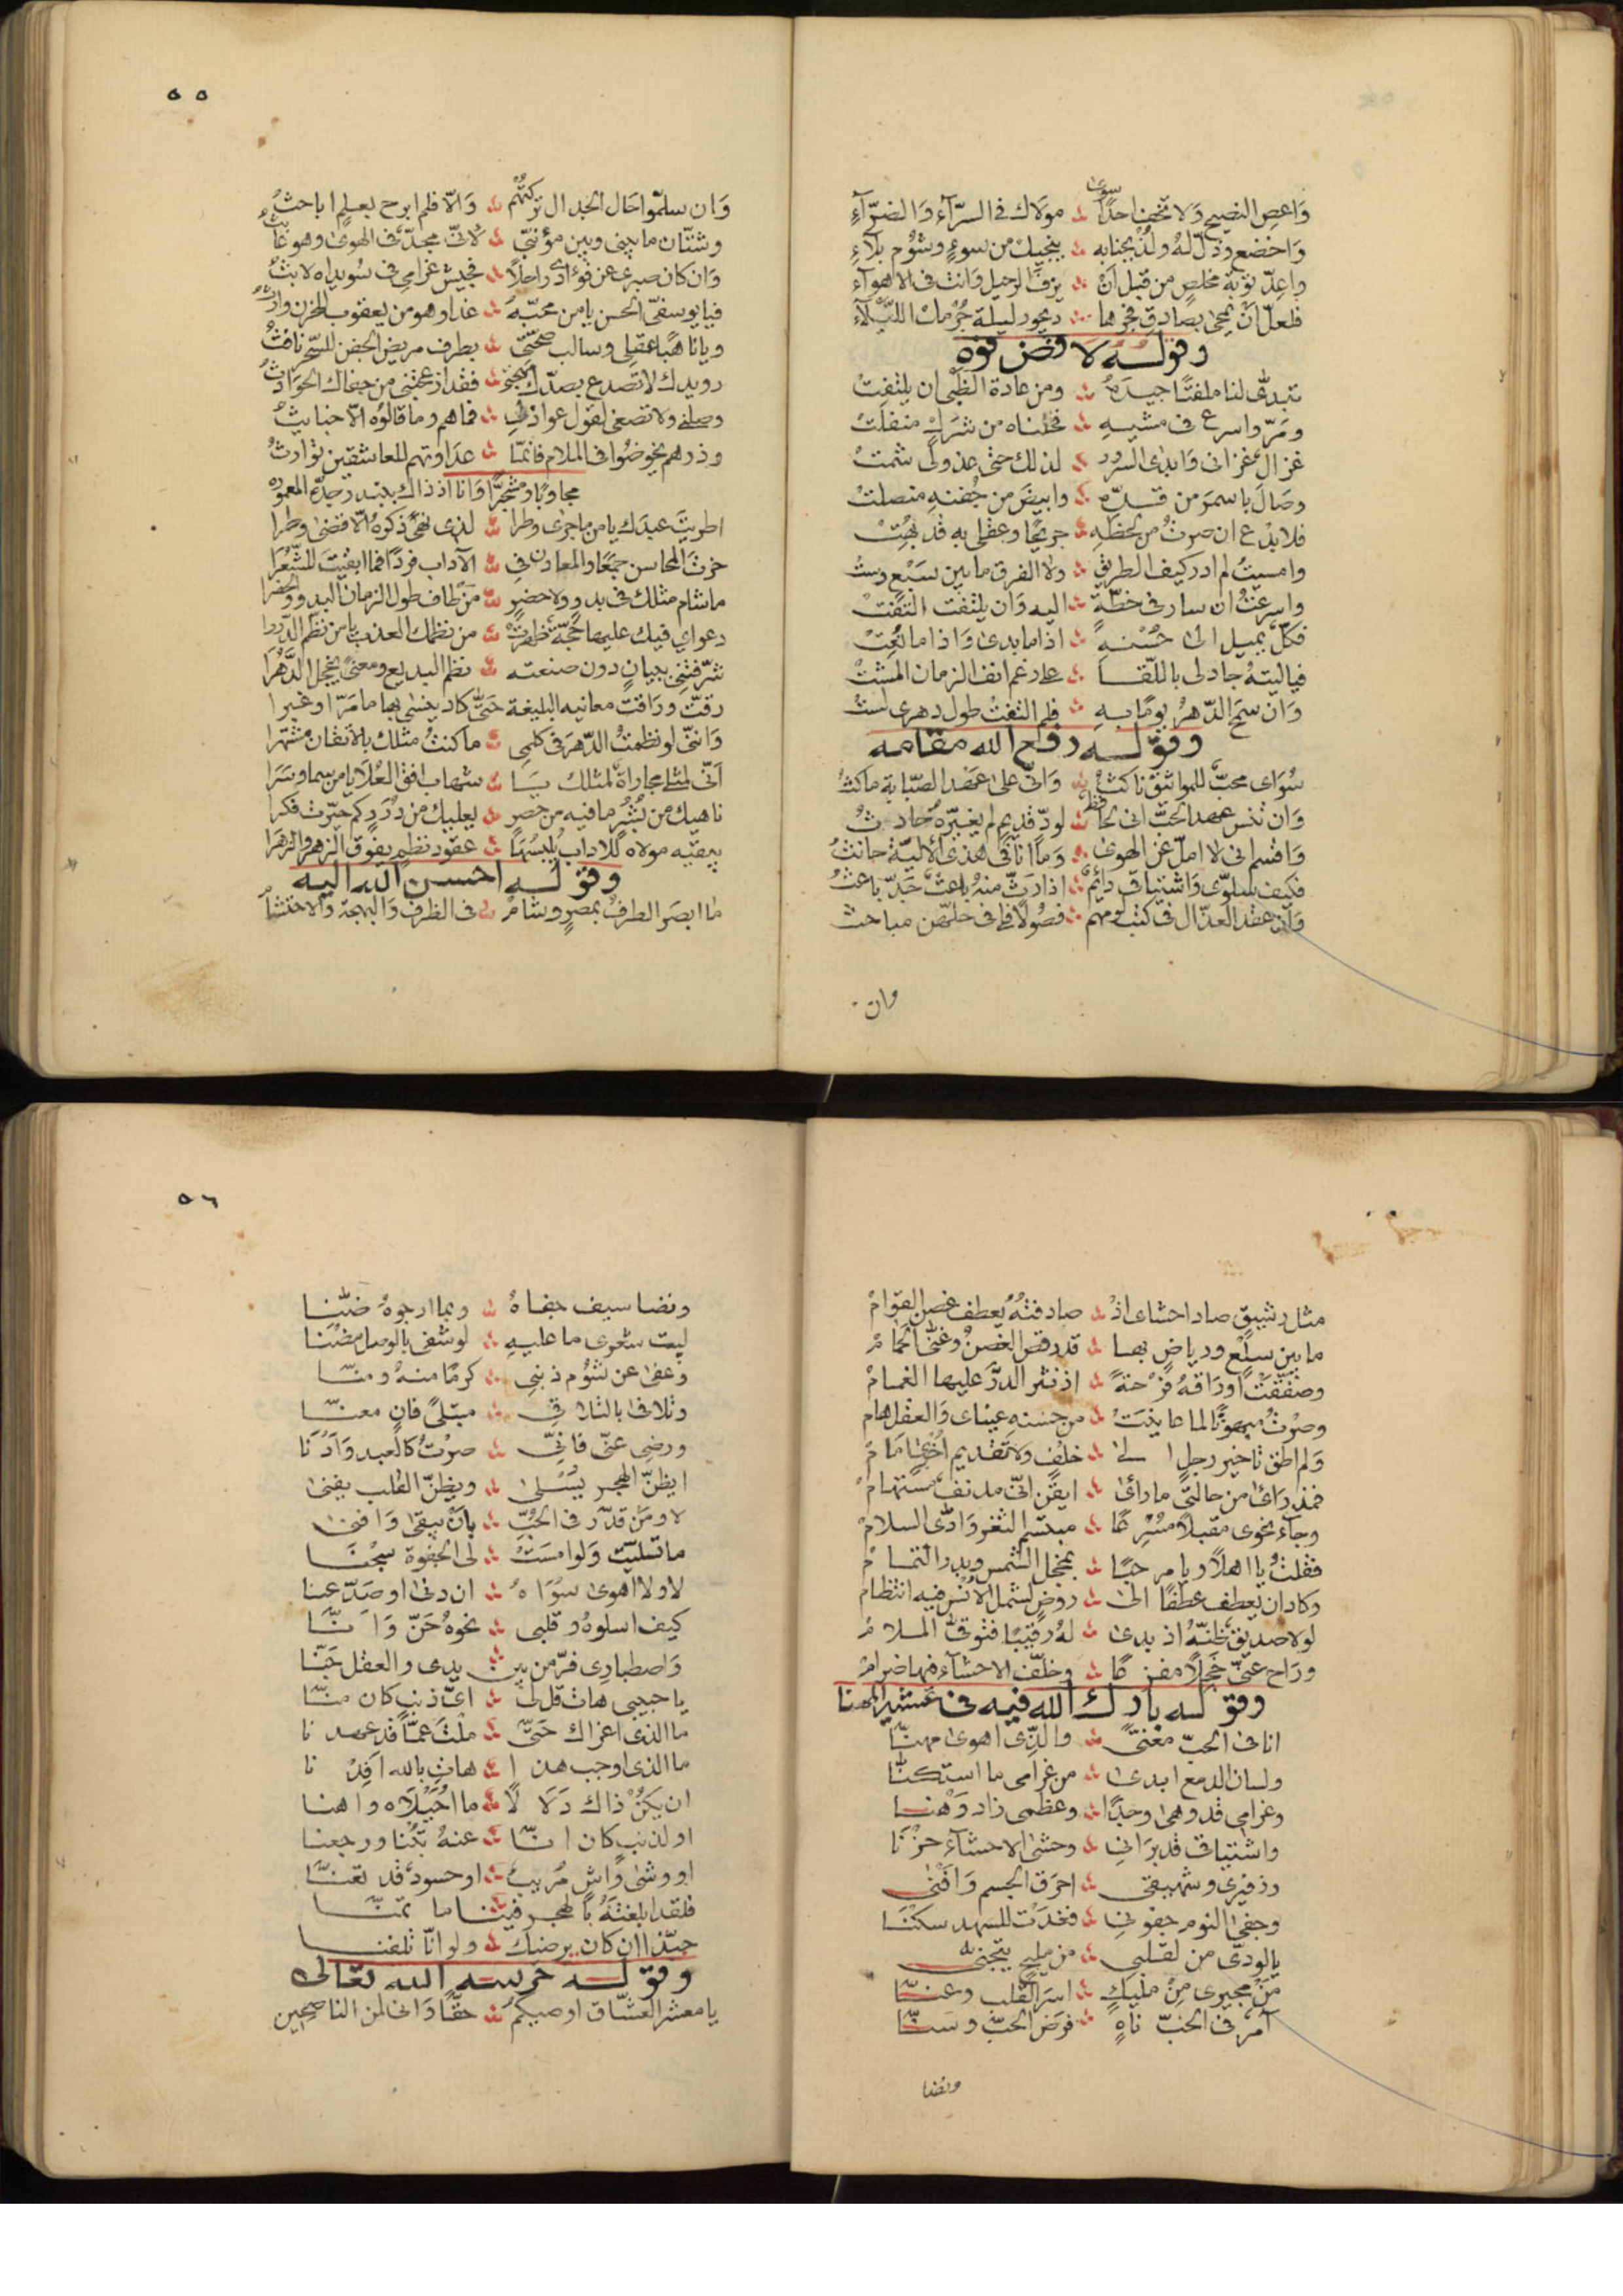 سوى
وَاعصِ النصيح وَلا تخف احدًا ∴ مولاك في السرّآء وَالضرّآءِ
وَاخضع وذلّ لهُ ولُذ بجنابه ∴ ينجيك من سوءٍ وشوْم بلآءِ
واعِدّ توبة مخلصٍ من قبل أنْ ∴ يزف الرحيل وَانت في الاهوآءِ
فلعلّ أنْ يمحى بصادق فجرها ∴ ديجور ليلة جُرْمك اللّيْلآءِ
وقوله لا فض فوه
تبدّى لنا ملفتًا جيدَهُ ∴ ومن عادة الظبى ان يلتفت
ومَرّ واسرع في مشيهِ ∴ فخلناه من شَرَكٍ منفلت
غزالٌ غزاني وَابدى السرور ∴ لذلك حتى عذولى شمت
وصَالَ باسمرَ من قدّهِ ∴ وابيضَ من جفنهِ منصلت
فلا بدْع ان صرتُ من لحظهِ ∴ جريحًا وعقلى به قد بُهِتْ
وامسيتُ لم ادر كيف الطريق ∴ ولا الفرق ما بين سَبْعٍ وست
واسرعتُ ان سار في خطّةٍ ∴ اليه وَان يلتفت التفت
فكلّ يميل الى حُسْنهِ ∴ اذا ما بدى وَاذا ما نُعِتْ
فياليتهُ جاد لى باللّقا ∴ على رغم انف الزمان المشت
وَان سمح الدّهرُ يومًا بهِ ∴ فلم التفت طول دهرى لست
وقوله رفع الله مقامه
سُوَاى محبّ للمواثيق ناكثُ ∴ وَانّى على عَهْد الصّبابة ماكثُ
وَان تنس عهد الحبّ انى لحافظ ∴ لودّ قديمٍ لم يغيّرهُ حادثُ
وَاقسم انى لا املّ عن الهوى ∴ وَما انا في هذى الأليّة حانثُ
فكيف سلوّى وَاشتياقى دائمٌ ∴ اذا رَثّ منهُ باعثٌ جَدّ باعثُ
وَان عقد العذّال في كتب لومهم ∴ فصُولًا فلى في حلهّن مباحث
وان
٥٥
وَان سلمّوا حَال الجدال تركتُهم ∴ وَالّا فلم ابرح بعلمٍ اباحثُ
وشتّان ما بينى وبين مؤنبّى ∴ لانّى مجدّ في الهوى وهو عابثُ
وَان كان صبرى عن فؤادى راحلًا ∴ فجيش غرامى في سُويداه لابثُ
فيا يوسفىّ الحسن يا من محبّهُ ∴ غدا وهو من يعقوب للحزن وارثُ
ويا ناهبًا عقلى وسالب صحّتى ∴ بطرف مريض الجفن للسّحر نافثُ
رويدك لا تصدع بصدّك مهجتى ∴ فقد ازعجتنى من جفاك الحوَادثُ
وصلنى ولا تصغى لقول عواذلى ∴ فما هم وما قالوُه الّا خبايثُ
وذرهم يخوضُوا في الملام فانمّا ∴ عدَاوتهم للعاشقين توَارثُ
مجاوبًا ومتشجرًا وَانا اذ ذاك ببندر جدّه المعموره
اطويتَ عبدك يا من ما جرى وطرا ∴ لذى نهًى ذكرهُ الّا قضى وطرا
حزتَ المحاسن جمعًا والمعادن في ∴ الآداب فردًا فما ابقيت للشُّعَرَا
ما شام مثلك في بدوٍ ولا حضرٍ ∴ مَنْ طاف طول الزمان البدو والحضَرا
دعواى فيك عليها حجّةٌ ظهرتْ ∴ من نظمك العذب يا من نظّم الدُّررا
شرّفتنى ببيانٍ دون صنعته ∴ نظم البديع ومعنىً يخجل الزَّهرَا
رقّتْ ورَاقتْ معانيه البليغة حتىّ كاد ينسى بها ما مَرّ او غبرا
وَاننى لو نظمتُ الدّهرَ في كلمى ∴ ما كنتُ مثلك بالاتقان مشتهرا
أنّى لمثلى مجاراةٌ لمثلك يَا ∴ شهاب افق العُلَا يا من سما وسَرَا
ناهيك من بُشْرٍ ما فيه من حصرٍ ∴ يعليك من دُرَرٍ كم حيّرت فكرا
يبقيه مولاه للآداب يُلْبسُهَا ∴ عقود نظمٍ يفوق الزهر والزهَرا
وقوله احسن الله اليه
ما ابصَر الطرفُ بمصرٍ وشامْ ∴ في الظرف وَالبهجة وَالاحتشامْ
مثل رشيقٍ صاد احشاى اذْ ∴ صادفتهُ يعطف غصن القوامْ
ما بين سلْعٍ ورياضٍ بها ∴ قد رقص الغصنُ وغنّى الحمامْ
وصفّقتْ اورَاقهُ فرْحةً ∴ اذ نثر الدرّ عليها الغمامْ
وصرْتُ مبهوتًا لما عاينَتْ ∴ من حسنهِ عيناى وَالعقل هام
وَلم اطق تاخير رجلٍ الى ∴ خلْفٍ ولا تقديم اُخْرى امَامْ
فمذ رَاى من حالتى ما رأى ∴ ايقن انّى مدنفٌ مستهامْ
وجآء نحوى مقبلًا مُسْرعًا ∴ مبتسم الثغر وَادّى السلامْ
فقلتُ يا اهلًا ويا مرحبًا ∴ بمخجل الشمس وبدر التمامْ
وكاد ان يعطف عطفًا الى ∴ روضٍ لشمل الاُنْس فيه انتظام
لولا صديق خلتهُ اذ بدى ∴ لهُ رقيبًا فتوقّى الملامْ
ورَاح عنّى خجلًا مفزعًا ∴ وخلّف الاحشآء فيها ضرامْ
وقوله بارك الله فيه في عشير المهنا
انا في الحبّ مُعَنّى ∴ والّذى اهوى مهنّا
ولسان الدمع ابدى ∴ من غرامى ما استكنّا
وغرامى قد وهى وجدًا ∴ وعظمى زاد وَهْنا
واشتياقى قد برَانى ∴ وحشى الاحشآء حزْنَا
وزفيرى وشهيقى ∴ احرَق الجسم وَافْنى
وجفى النوم جفونى ∴ فغدَتْ للسهد سكْنَا
يا لودّى من لقلبى ∴ من مليحٍ يتجنى
مَنْ مجيرى مِنْ مليكٍ ∴ اسَر القلب وعنّا
آمرٌ في الحبّ ناهٍ ∴ فرَض الحبّ وسَنّا
ونضا
٥٦
ونضا سيف جفاهُ ∴ وبما ارجوهُ ضنّا
ليت شعرى ما عليهِ ∴ لو شفى بالوصل مضْنَا
وَعفى عن شؤم ذنبى ∴ كرمًا منهُ ومنّا
وتلافى بالتلاقى ∴ مبتلىً فانٍ معنّا
ورضى عنّى فانّى ∴ صرْتُ كالعبد وَادْنَا
ايظنّ الهجر يُسْلى ∴ ويظنّ القلب يفنى
لا ومَنْ قدّر في الحُبِّ ∴ بأنْ يبقى وَافنى
ما تسليّت وَلو امسَتْ ∴ لى الجفوة سجْنَا
لا ولا اهوى سوَاهُ ∴ ان دنى او صَدّ عنا
كيف اسلوهُ وقلبى ∴ نحوهُ حَنّ وَانّا
وَاصطبارى فرّ من بين ∴ يدى والعقل جُنّا
يا حبيبى هات قل لى ∴ اىّ ذنبٍ كان منّا
ما الذى اغراك حتىّ ∴ ملْتَ عمّا قد عهدنا
ما الذى اوجب هذا ∴ هاتِ بالله افِدْنا
ان يكنْ ذاك دَلَالًا ∴ ما احَيْلَاه واهنا
او لذنبٍ كان انّا ∴ عنهُ تُبْنا ورجعنا
او وشى وَاشٍ مُريبٌ ∴ او حسودٌ قد تعنّا
فلقد ابلغتهُ بالهجر فينا ما تمنّا
حبّذا ان كان يرضيك ∴ ولو انّا تلفنا
وقوله حرسه الله تعالى
يا معشر العشّاق اوصيكُمُ ∴ حقًّا وَانى لمن الناصحين